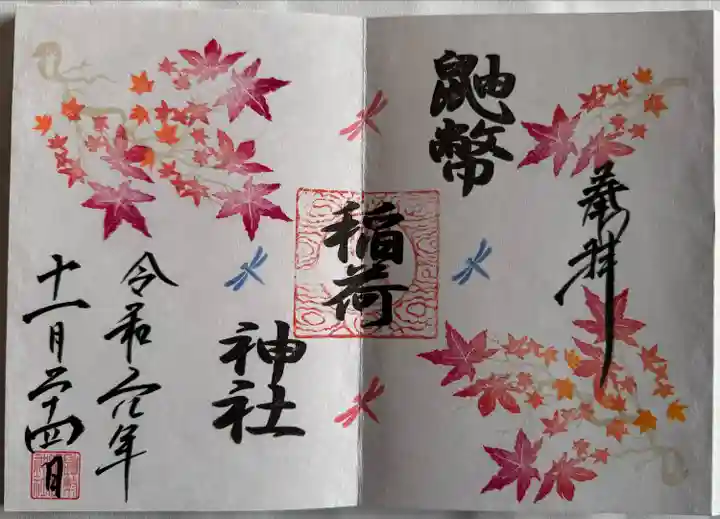 奉拝
鼬幣
稲荷
神社
令和元年
十一月二十四日